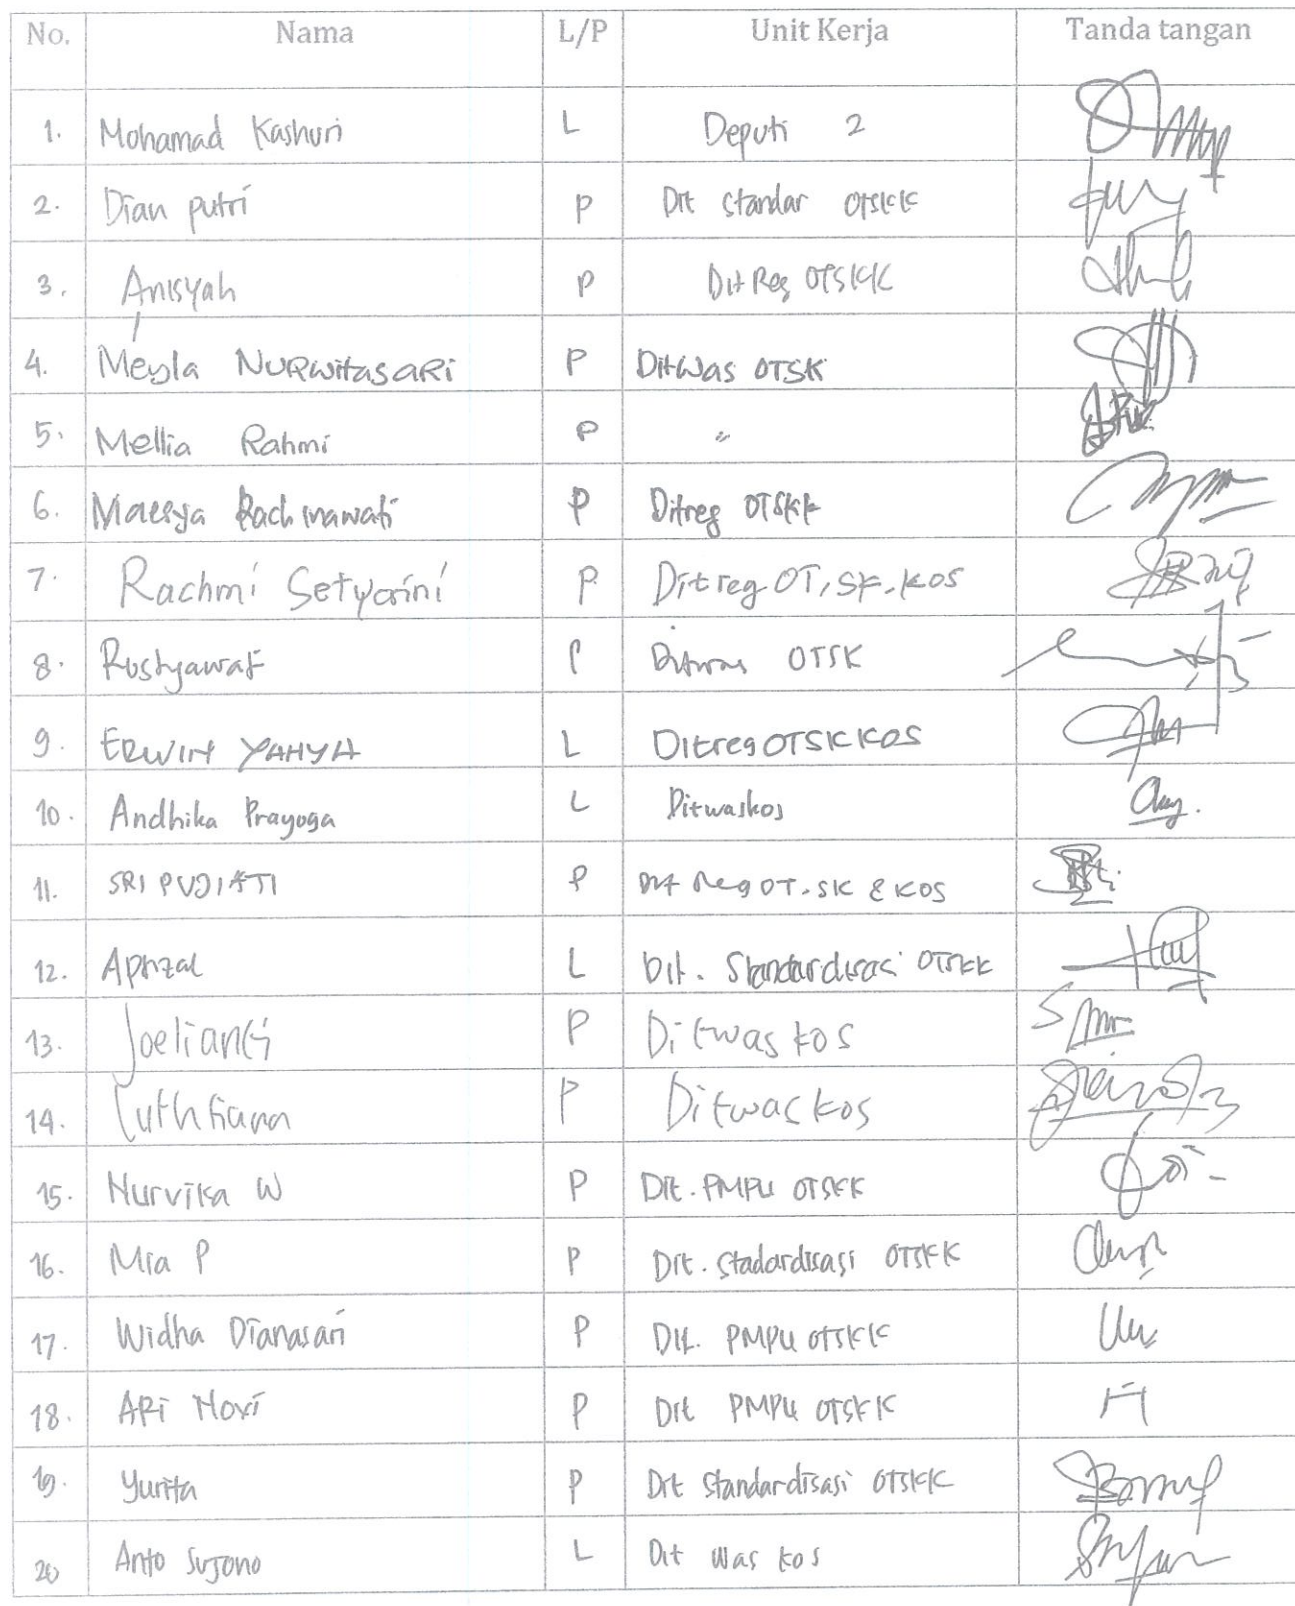 No. Nama L/P Unit Kerja Tanda tangan
1. Mohamad Kashuri L Deputi 2
2. Dian putri P Dit Standar OTSKK
3. Anisyah P Dit Reg OTSKK
4. Meyla NURWitasaRi P DitWas OTSK
5. Mellia Rahmi P "
6. Maesya Rachmawati P Ditreg OTSKK
7. Rachmi Setyorini P Ditreg OT, SK, KOS
8. Rustyawati P Ditwas OTSK
9. ERWIN YAHYA L DitregOTSKKOS
10. Andhika Prayoga L Ditwaskos
11. SRI PUJIATI P Dit Reg OT. SK & KOS
12. Aprizal L Dit. Standardisasi OTSKK
13. Joelianti P Ditwas kos
14. Luthfiana P Ditwas kos
15. Nurvika W P Dit. PMPU OTSKK
16. Mia P P Dit. Stadardisasi OTSKK
17. Widha Dianasari P Dit. PMPU OTSKK
18. ARi Novi P Dit PMPU OTSKK
19. Yurita P Dit Standardisasi OTSKK
20 Anto Sujono L Dit Was kos